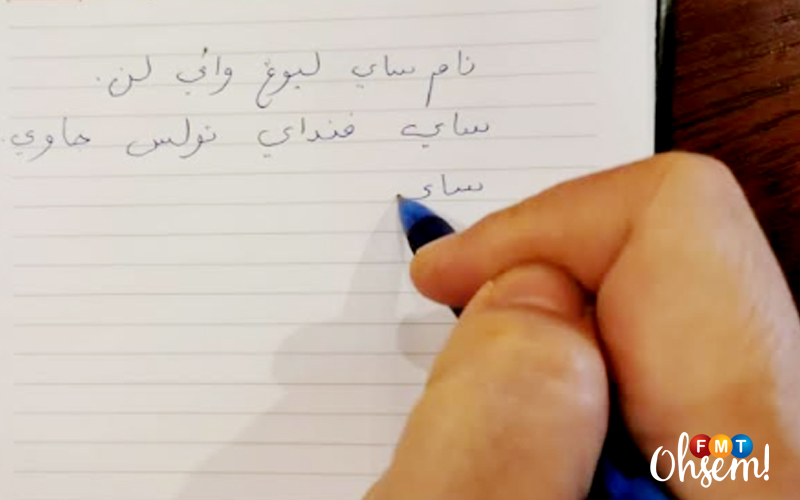 نام ساي ليوڠ وائي لن.
ساي ڤنداي تولس جاوي.
ساي
FMT
Ohsem!